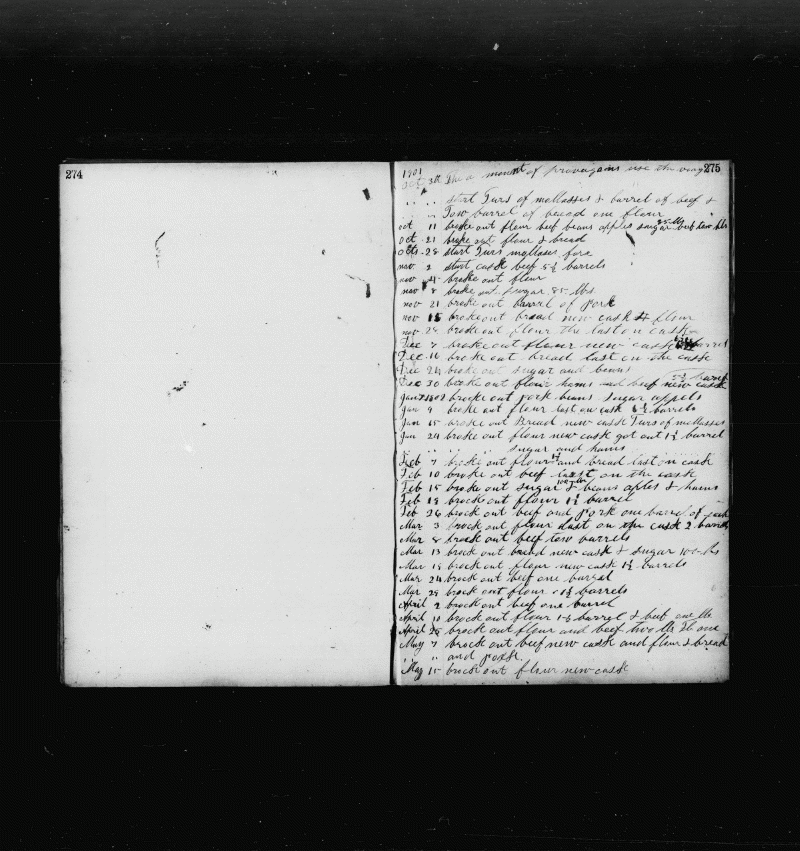 274
275
1901
Oct 3th The a mount of provagins use the voag
" " start Turs of mollasses & barrel of beef &
" " Tow barrel of bread one flour
oct 11 broke out flour beef beans apples sugar 85 lbs beef tow bls
Oct 21 broke out flour & bread
Octs 28 start Turs mollases fore
nov 2 start cask beef 5½ barrels
nov 4 broke out flour
nov 8 broke out sugar 85 lbs
nov 21 broke out barrel of pork
nov 15 broke out bread new cask & flour
nov 28 broke out flour the last on cask
Dec 7 broke out flour new cask barrel
Dec 16 broke out bread last on the cask
Dec 24 broke out sugar and beans
Dec 30 broke out flour hams and beef new cask 5½ barrel
Jan 1902 brocke out pork beans sugar appels
Jan 9 broke out flour last on cask barrels
Jan 15 broke out Bread new cask Turs of mollasses
Jan 24 broke out flour new cask got out 1½ barrel
" " " " sugar and hams
Feb 7 broke out flour and bread last on cask
Feb 10 broke out beef last on the cask
Feb 15 broke out sugar 100 lbs & beans aples & hams
Feb 18 brock out flour 1½ barrel
Feb 26 brock out beef and pork one barrel of each
Mar 3 brock out flour last on the cask 2 barrels
Mar 8 brock out beef tow barrels
Mar 13 brock out bread new cask & sugar 100 lbs
Mar 18 brock out flour new cask 1½ barrels
Mar 24 brock out beef one barrel
Mar 29 brock out flour 1½ barrels
April 2 brock out beef one barrel
April 10 brock out flour 1½ barrel & beef one
April 25 brock out flour and beef two
May 7 brock out beef new cask and flour & bread
" " and pork
May 15 brock out flour new cask